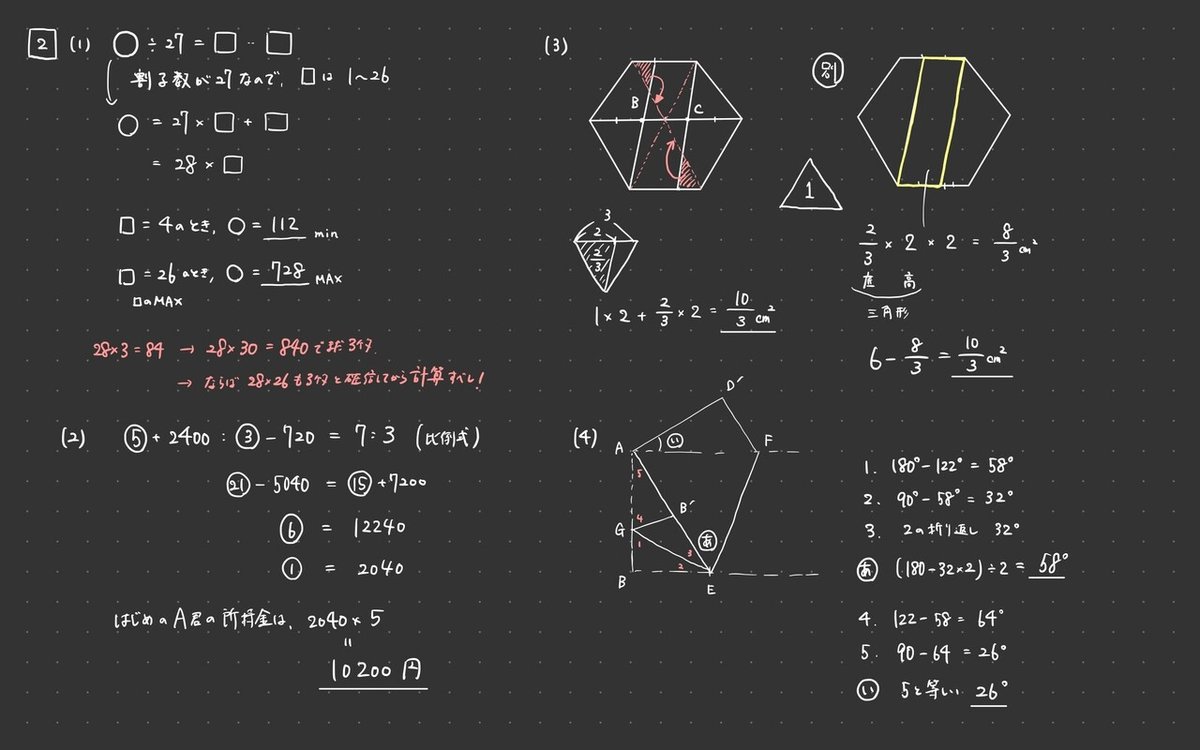 2 (1) ○ ÷ 27 = □ ‥ □
割る数が27なので、□は 1〜26
○ = 27 × □ + □
= 28 × □
□ = 4のとき, ○ = 112 min
□ = 26のとき, ○ = 728 MAX
□のMAX
28×3=84 → 28×30=840で
→ ならば 28×26も3ケタと確信してから計算すべし!
(2) ⑤ + 2400 : ③ - 720 = 7 : 3 (比例式)
㉑ - 5040 = ⑮ + 7200
⑥ = 12240
① = 2040
はじめのA君の所持金は、2040 × 5
=
10200円
(3)
B C
3
2
2/3
1 × 2 + 2/3 × 2 = 10/3 cm²
別
1
2/3 × 2 × 2 = 8/3 cm²
底 高
三角形
6 - 8/3 = 10/3 cm²
(4)
D′
A い F
5
4 B′
G あ
1 3
2
B E
1. 180° - 122° = 58°
2. 90° - 58° = 32°
3. 2の折り返し 32°
あ (180 - 32×2) ÷ 2 = 58°
4. 122 - 58 = 64°
5. 90 - 64 = 26°
い 5と等しい 26°